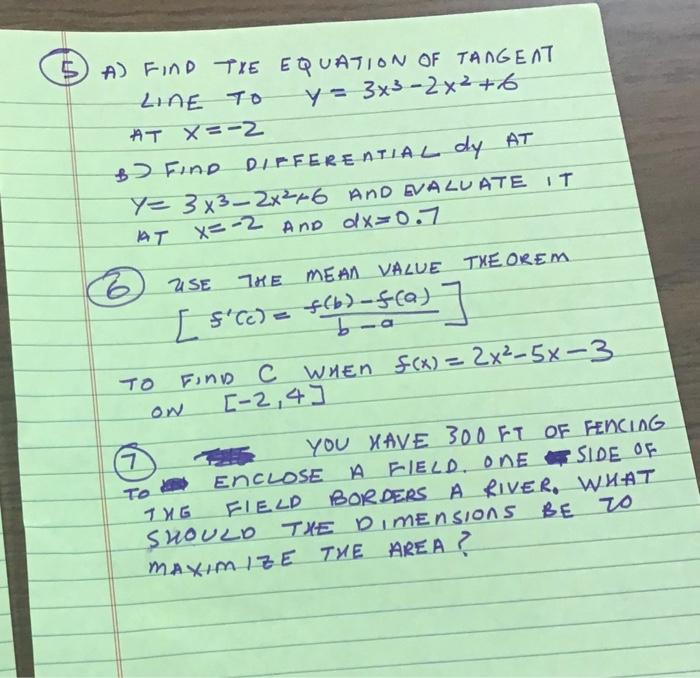 5 A) FIND THE EQUATION OF TANGENT
LINE TO y = 3x³-2x²+6
AT X=-2
B) FIND DIFFERENTIAL dy AT
Y= 3x³-2x²+6 AND EVALUATE IT
AT X=-2 AND dx=0.7
6 USE THE MEAN VALUE THEOREM
[ f'(c) = f(b)-f(a) / b-a ]
TO FIND C WHEN f(x) = 2x²-5x-3
ON [-2,4]
7 YOU HAVE 300 FT OF FENCING
TO ENCLOSE A FIELD. ONE SIDE OF
THE FIELD BORDERS A RIVER. WHAT
SHOULD THE DIMENSIONS BE TO
MAXIMIZE THE AREA?